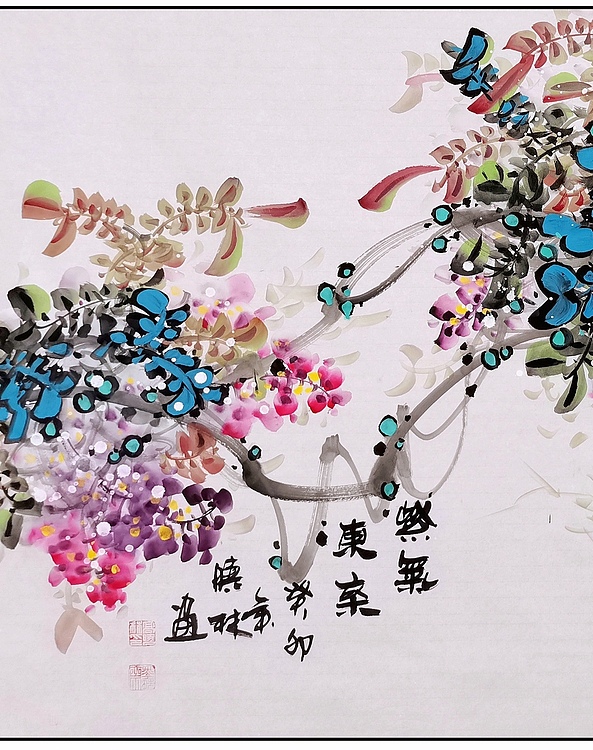 紫氣
東來
癸卯
年
曉林
畫